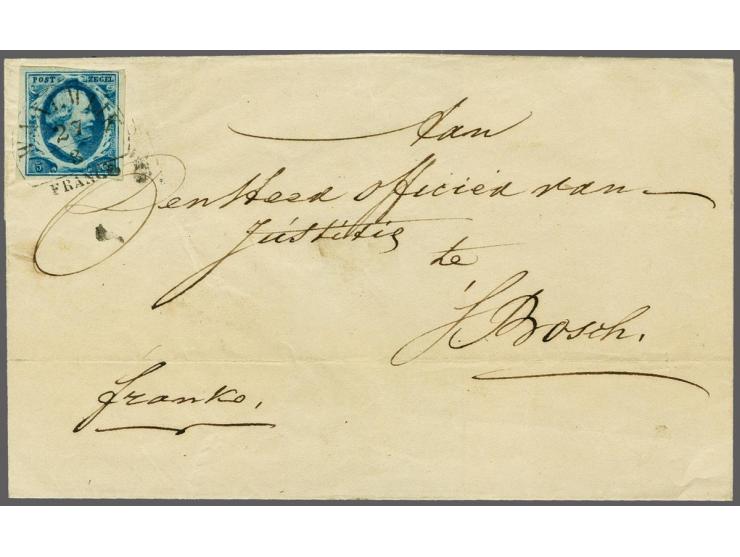 POST ZEGEL
WAALWIJK
27
5
FRANCO
Aan
Den Heer Officier van
Justitie
te
'S Bosch.
franko.